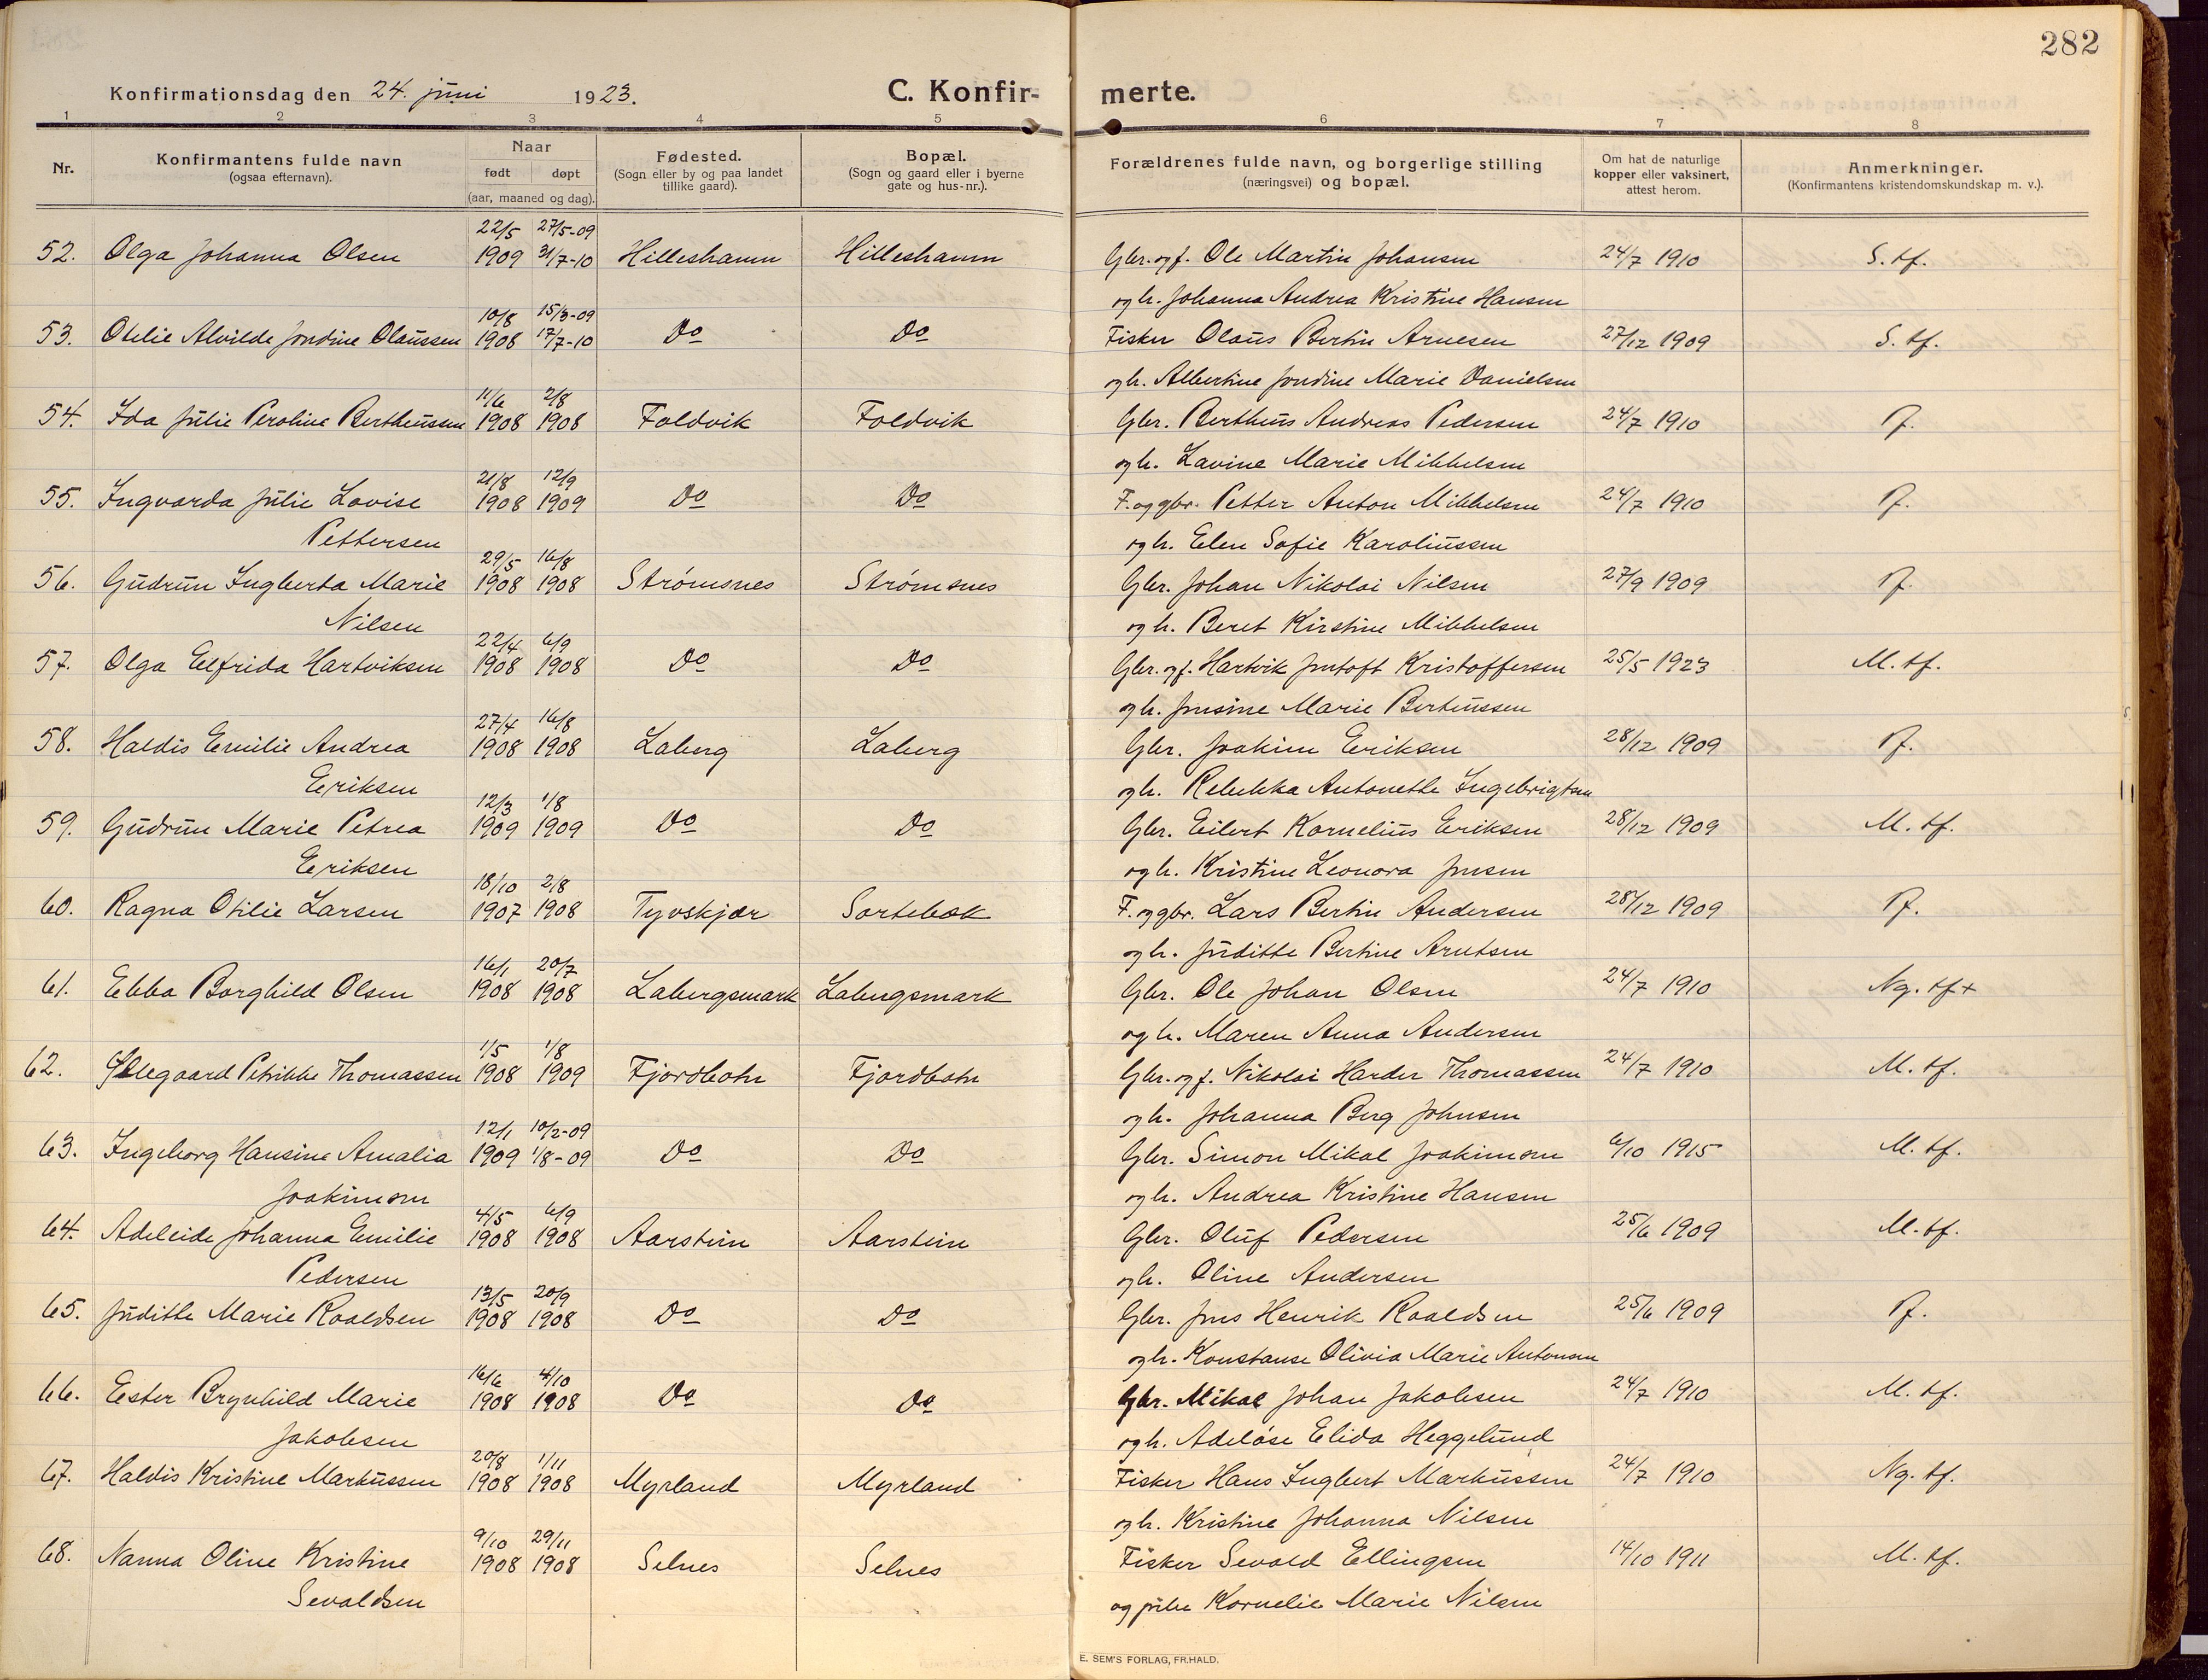 282
Konfirmationsdag den 24. juni 1923.
C. Konfir-
merte.
1 2 3 4 5 6 7 8
Nr.
Konfirmantens fulde navn
(ogsaa efternavn).
Naar
født døpt
(aar, maaned og dag).
Fødested.
(Sogn eller by og paa landet
tillike gaard).
Bopæl.
(Sogn og gaard eller i byerne
gate og hus-nr.).
Forældrenes fulde navn, og borgerlige stilling
(næringsvei) og bopæl.
Om hat de naturlige
kopper eller vaksinert,
attest herom.
Anmerkninger.
(Konfirmantens kristendomskundskap m. v.).
22/5 27/5-09
52. Olga Johanna Olsen 1909 31/7-10 Hilleshamn Hilleshamn Gbr. og f. Ole Martin Johansen 24/7 1910 S. tf.
og h. Johanna Andrea Kristine Hansen
10/8 15/3-09
53. Otelie Alvilde Jondine Olaussen 1908 17/7-10 Do Do Fisker Olaus Bertin Arnesen 27/12 1909 S. tf.
og h. Albertine Jondine Marie Danielsen
11/6 2/8
54. Ida Julie Peroline Bertheussen 1908 1908 Foldvik Foldvik Gbr. Bertheus Andreas Pedersen 24/7 1910
og h. Lavine Marie Mikkelsen
21/8 12/9
55. Ingvarda Julie Lovise 1908 1909 Do Do F. og gbr. Petter Anton Mikkelsen 24/7 1910
Pettersen og h. Elen Sofie Karoliussen
29/5 16/8
56. Gudrun Ingberta Marie 1908 1908 Strømsnes Strømsnes Gbr. Johan Nikolai Nilsen 27/9 1909
Nilsen og h. Beret Kirstine Mikkelsen
22/4 6/9
57. Olga Elfrida Hartviksen 1908 1908 Do Do Gbr. og f. Hartvik Jentoft Kristoffersen 25/5 1923 M. tf.
og h. Jensine Marie Berteussen
27/4 16/8
58. Haldis Emilie Andrea 1908 1908 Laberg Laberg Gbr. Joakim Eriksen 28/12 1909
Eriksen og h. Rebekka Antonette Ingebrigtsen
12/3 1/8
59. Gudrun Marie Petrea 1909 1909 Do Do Gbr. Eilert Kornelius Eriksen 28/12 1909 M. tf.
Eriksen og h. Kristine Leonora Jensen
18/10 2/8
60. Ragna Otilie Larsen 1907 1908 Tyvskjær Sortebæk F. og gbr. Lars Bertin Andersen 28/12 1909
og h. Juditte Bertine Arntsen
16/1 20/7
61. Ebba Borghild Olsen 1908 1908 Labergsmark Labergsmark Gbr. Ole Johan Olsen 24/7 1910 Ng. tf +
og h. Maren Anna Andersen
1/5 1/8
62. Ollegaard Petrikke Thomassen 1908 1909 Fjordbotn Fjordbotn Gbr. og f. Nikolai Harder Thomassen 24/7 1910 M. tf.
og h. Johanna Berg Johnsen
12/1 10/2-09
63. Ingeborg Hansine Amalia 1909 1/8-09 Do Do Gbr. Simon Mikal Joakimsen 6/10 1915 M. tf.
Joakimsen og h. Andrea Kristine Hansen
4/5 6/9
64. Adeleide Johanna Emilie 1908 1908 Aarstein Aarstein Gbr. Oluf Pedersen 25/6 1909 M. tf.
Pedersen og h. Oline Andersen
13/5 20/9
65. Juditte Marie Roaldsen 1908 1908 Do Do Gbr. Jens Henrik Roaldsen 25/6 1909
og h. Konstanse Olivia Marie Antonsen
16/6 4/10
66. Ester Brynhild Marie 1908 1908 Do Do Gbr. Mikal Johan Jakobsen 24/7 1910 M. tf.
Jakobsen og h. Adeløse Elida Heggelund
20/8 1/11
67. Haldis Kristine Markussen 1908 1908 Myrland Myrland Fisker Hans Ingbert Markussen 24/7 1910 Ng. tf.
og h. Kristine Johanna Nilsen
9/10 29/11
68. Nanna Oline Kristine 1908 1908 Selnes Selnes Fisker Sevald Ellingsen 14/10 1911 M. tf.
Sevaldsen og pike Kornelie Marie Nilsen
E. SEM'S FORLAG, FR.HALD.